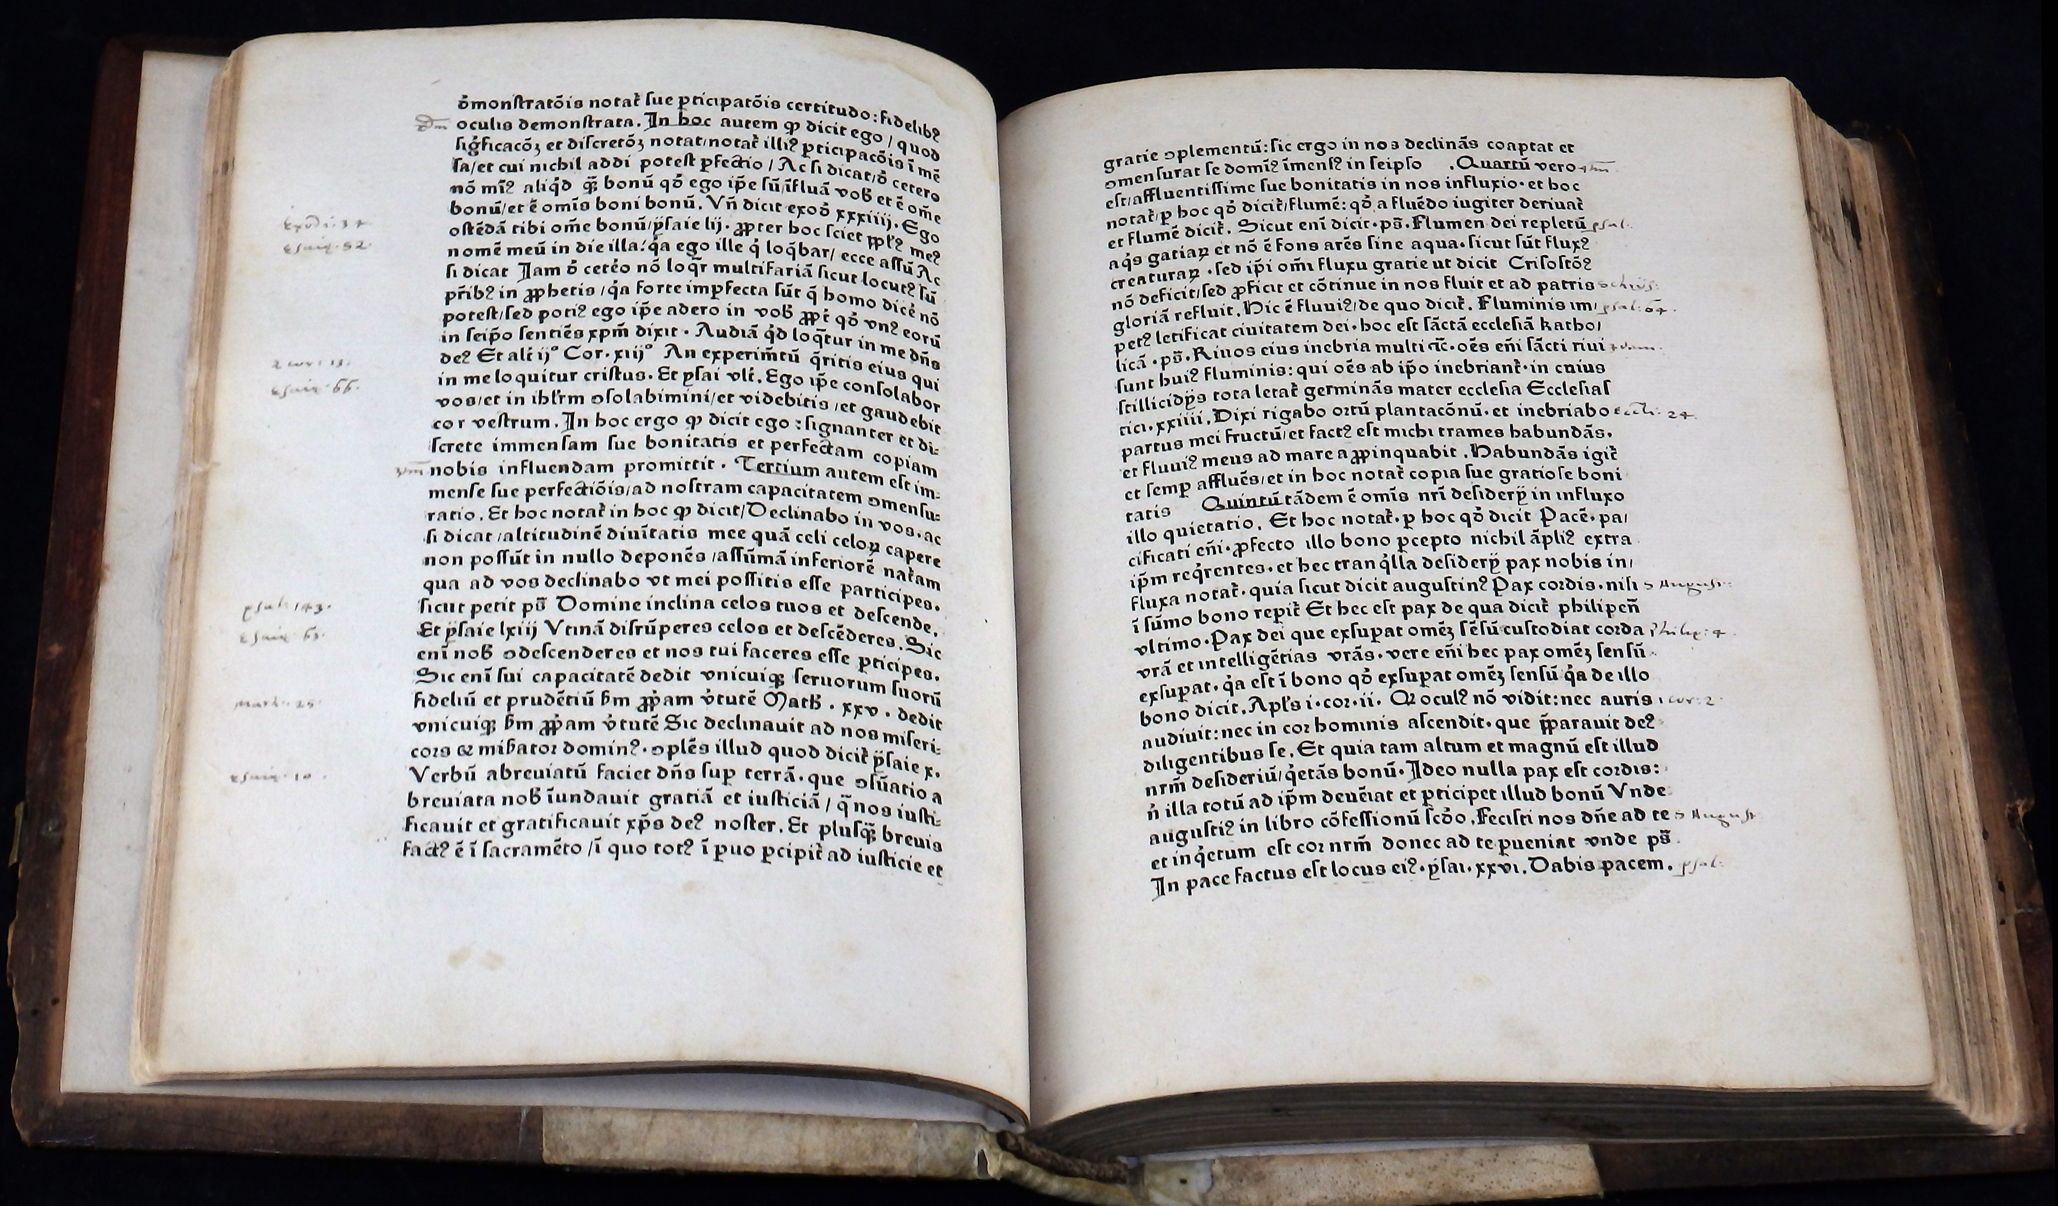 ꝺmonstratõis notat᷑ sue ꝑticipatõis certitudo: fidelibꝰ
oculis demonstrata. In hoc autem ꝙ dicit ego / quod
sig̃ficacõꝫ et discretõꝫ notat/notat᷑ illiꝰ ꝑticipacõis ĩ mẽ
sa/et cui nichil addi potest ꝑfectio / Ac si dicat/ꝺ cetero
nõ miꝰ aliq̇d qꝫ̃ bonũ qꝺ ego ip̃e sũ/ĩfluã vob̃ et ẽ om̃e
bonũ/et ẽ om̃is boni bonũ. Vñ dicit exoꝺ xxxiiij. Ego
ostẽdã tibi om̃e bonũ/ẏsaie lij. ꝓpter hoc sciet ꝓpl̃ꝰ meꝰ
nomẽ meũ in die illa: q̇a ego ille q̇ loq̇bar/ ecce assũ Ac
si dicat Jam ꝺ ceteo nõ loq̃r multifariã sicut locutꝰ sũ
pr̃ibꝰ in ꝓphetis /q̇a forte imꝑfecta sũt q̃ homo dicẽ nõ
potest/sed potiꝰ ego ip̃e adero in vob̃ ꝓpt᷑ qꝺ vnꝰ eorũ
in seip̃o sentiẽs xp̃m dixit · Audiã q̇d loq̃tur in me dñs
deꝰ Et alt᷑ ijº Cor. xiijº An experim̃tũ q̃ritis eius qui
in me loquitur cristus. Et ẏsai vlt᷑. Ego ip̃e consolabor
vos/et in ihl̃rm ꝯsolabimini/et videbitis /et gaudebit
cor vestrum. In hoc ergo ꝙ dicit ego : signanter et di⸗
screte immensam sue bonitatis et perfectam copiam
nobis influendam promittit · Tertium autem est im⸗
mense sue perfectiõis/ad nostram capacitatem ꝯmensu⸗
ratio. Et hoc notat᷑ in hoc ꝙ dicit/Declinabo in vos. ac
si dicat /altitudinẽ diuĩtatis mee quã celi celoꝝ capere
non possũt in nullo deponẽs /assũmã inferiorẽ nat᷑am
qua ad vos declinabo vt mei possitis esse participes.
sicut petit ps̃ Domine inclina celos tuos et descende.
Et ẏsaie lxiij Vtinã disrũperes celos et descẽderes. Sic
enĩ nob̃ ꝯdescenderes et nos tui faceres esse ꝑticipes.
Sic enĩ sui capacitatẽ dedit vnicuiqꝫ seruorum suorũ
fideliũ et prudẽtiũ ẞm ꝓpam v̓tutẽ Math̃ . xxv . dedit
vnicuiqꝫ ẞm ꝓpam v̓tutẽ Sic declinauit ad nos miseri⸗
cors ⁊ miẞator dominꝰ. ꝯplẽs illud quod dicit᷑ ẏsaie x.
Verbũ abreuiatũ faciet dñs suꝑ terrã. que ꝯsũatio a
breuiata nob̃ ĩundauit gratiã et iusticiã / q̃ nos iusti⸗
ficauit et gratificauit xp̃s deꝰ noster. Et plusqꝫ̃ breuis
factꝰ ẽ ĩ sacramẽto /ĩ quo totꝰ ĩ ꝑuo ꝑcipit᷑ ad iusticie et
Exodi: 34
Esaie. 52.
2 cor: 13.
Esaie. 66.
psal: 143.
Esaie. 63.
Math: 25.
Esaie. 10.
gratie ꝯplementũ: sic ergo in nos declinãs coaptat et
ꝯmensurat se domiꝰ ĩmensꝰ in seipso . Quartũ vero
est/affluentissime sue bonitatis in nos influxio· et hoc
notat᷑/ꝑ hoc qꝺ dicit᷑/flumẽ: qꝺ a fluẽdo iugiter deriuat᷑
et flumẽ dicit᷑. Sicut enĩ dicit· ps̃. Flumen dei repletũ psal.
aq̇s gatiaꝝ et nõ ẽ fons arẽs sine aqua· sicut sũt fluxꝰ
creaturaꝝ · sed ip̃i om̃i fluxu gratie ut dicit Crisostõꝰ
nõ deficit/sed ꝓficit et cõtinue in nos fluit et ad patris
gloriã refluit. Hic ẽ fluuiꝰ/de quo dicit᷑. Fluminis im/ psal: 64.
petꝰ letificat ciuitatem dei· hoc est sãctã ecclesiã katho/
licã · ps̃. Riuos eius inebria multi ⁊c̃· oẽs eñi sãcti riui
sunt huiꝰ fluminis: qui oẽs ab ip̃o inebriant᷑· in cuius
stillicidẏs tota letat᷑ germinãs mater ecclesia Ecclesias
tici. xxiiii. Dixi rigabo ortũ plantacõnũ· et inebriabo Eccli: 24.
partus mei fructũ/ et factꝰ est michi trames habundãs.
et fluuiꝰ meus ad mare aꝓpinquabit . Habundãs igit᷑
et semꝑ affluẽs/et in hoc notat᷑ copia sue gratiose boni
tatis Quintũ tãdem ẽ omĩs nr̃i desiderẏ in influxo
illo quietatio. Et hoc notat᷑· ꝑ hoc qꝺ dicit Pacẽ· pa/
cificati eñi· ꝓfecto illo bono ꝑcepto nichil ãpliꝰ extra
ip̃m req̇rentes· et hec tranq̇lla desiderẏ pax nobis in/
fluxa notat᷑· quia sicut dicit augustinꝰ Pax cordis· nisi
ĩ sũmo bono reꝑit᷑ Et hec est pax de qua dicit᷑ philipeñ
vltimo· Pax dei que exsuꝑat omẽꝫ sẽsũ custodiat corda Philip: 4
vr̃ã et intelligẽtias vr̃ãs· vere eñi hec pax omẽꝫ sensũ
exsuꝑat· q̇a est ĩ bono qꝺ exsuꝑat omẽꝫ sensũ q̇a de illo
bono dicit. Apl̃s i· cor· ii· Q oculꝰ nõ vidit: nec auris 1 cor: 2
audiuit: nec in cor hominis ascendit· que p̃parauit deꝰ
diligentibus se. Et quia tam altum et magnũ est illud
nr̃m desideriũ/ q̇etãs bonũ. Ideo nulla pax est cordis:
ñ illa totũ ad ip̃m deuẽiat et ꝑticipet illud bonũ Vnde
augustiꝰ in libro cõfessionũ scꝺo. Fecisti nos dñe ad te
et inq̇etum est cor nr̃m donec ad te ꝑueniat vnde ps̃
In pace factus est locus eiꝰ· ẏsai· xxvi. Dabis pacem. psal: